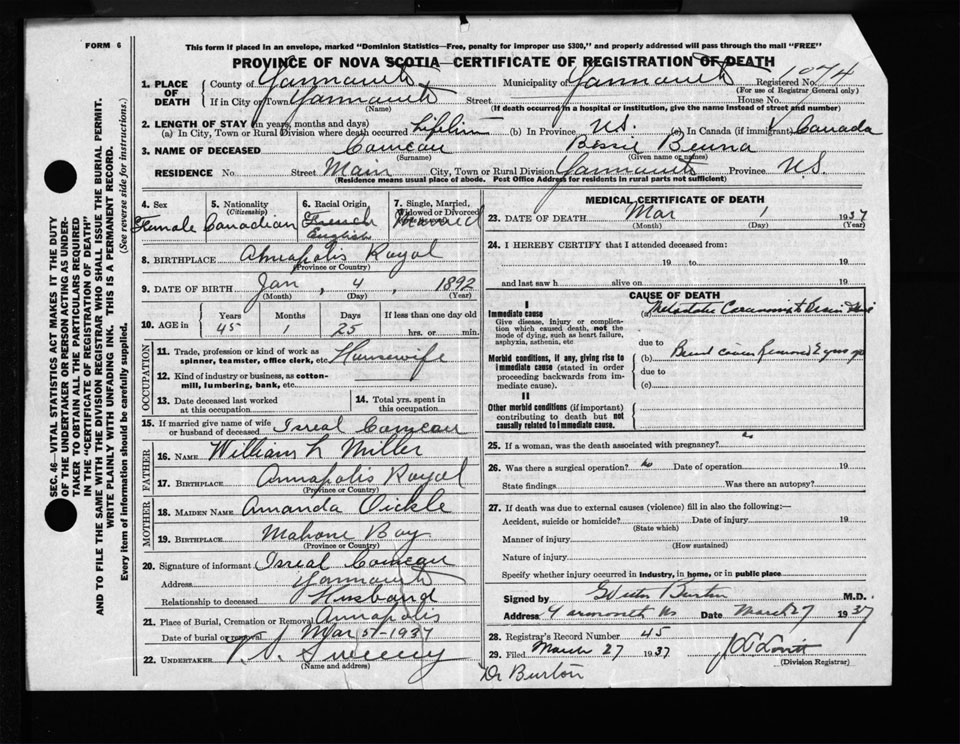 FORM 6
This form if placed in an envelope, marked "Dominion Statistics—Free, penalty for improper use $300," and properly addressed will pass through the mail "FREE"
PROVINCE OF NOVA SCOTIA—CERTIFICATE OF REGISTRATION OF DEATH
1. PLACE OF DEATH County of Yarmouth Municipality of Yarmouth Registered No. 1074
(For use of Registrar General only)
If in City or Town Yarmouth Street House No.
(Name) (If death occurred in a hospital or institution, give the name instead of street and number)
2. LENGTH OF STAY (in years, months and days)
(a) In City, Town or Rural Division where death occurred (b) In Province N.S. (c) In Canada (if immigrant) Canada
3. NAME OF DECEASED Comeau Bessie
(Surname) (Given name or names)
RESIDENCE No Street Main City, Town or Rural Division Yarmouth Province N.S.
(Residence means usual place of abode. Post Office Address for residents in rural parts not sufficient)
SEC. 46—VITAL STATISTICS ACT MAKES IT THE DUTY
OF THE UNDERTAKER OR PERSON ACTING AS UNDER-
TAKER TO OBTAIN ALL THE PARTICULARS REQUIRED
IN THE "CERTIFICATE OF REGISTRATION OF DEATH"
AND TO FILE THE SAME WITH THE DIVISION REGISTRAR WHO SHALL ISSUE THE BURIAL PERMIT.
WRITE PLAINLY WITH UNFADING INK. THIS IS A PERMANENT RECORD.
Every item of information should be carefully supplied. (See reverse side for instructions.)
4. Sex 5. Nationality 6. Racial Origin 7. Single, Married,
(Citizenship) Widowed or Divorced
Female Canadian French Married
English
8. BIRTHPLACE Annapolis Royal
(Province or Country)
9. DATE OF BIRTH Jan, 4, 1892
(Month) (Day) (Year)
10. AGE in Years Months Days If less than one day old
45 1 25 hrs. or min.
OCCUPATION
11. Trade, profession or kind of work as
spinner, teamster, office clerk, etc. Housewife
12. Kind of industry or business, as cotton-
mill, lumbering, bank, etc.
13. Date deceased last worked at this occupation 14. Total yrs. spent in this occupation
15. If married give name of wife
or husband of deceased Isreal Comeau
FATHER
16. NAME William L Miller
17. BIRTHPLACE Annapolis Royal
(Province or Country)
MOTHER
18. MAIDEN NAME Amanda
19. BIRTHPLACE Mahone Bay
(Province or Country)
20. Signature of informant Isreal Comeau
Address Yarmouth
Relationship to deceased Husband
21. Place of Burial, Cremation or Removal Annapolis
Date of burial or removal Mar 5th-1937
22. UNDERTAKER V.S. Sweeny
(Name and address)
MEDICAL CERTIFICATE OF DEATH
23. DATE OF DEATH Mar 1 1937
(Month) (Day) (Year)
24. I HEREBY CERTIFY that I attended deceased from:
19 to 19
and last saw h alive on 19
CAUSE OF DEATH
I
Immediate cause
Give disease, injury or complica-
tion which caused death, not the
mode of dying, such as heart failure,
asphyxia, asthenia, etc
(a)
Morbid conditions, if any, giving rise to
immediate cause (stated in order
proceeding backwards from im-
mediate cause).
due to
(b)
due to
(c)
II
Other morbid conditions (if important)
contributing to death but not
causally related to immediate cause.
25. If a woman, was the death associated with pregnancy? no
26. Was there a surgical operation? no Date of operation 19
State findings Was there an autopsy?
27. If death was due to external causes (violence) fill in also the following:—
Accident, suicide or homicide? Date of injury 19
(State which)
Manner of injury
(How sustained)
Nature of injury
Specify whether injury occurred in industry, in home, or in public place
Signed by Burton M.D.
Address Yarmouth NS Date March 27 1937
28. Registrar's Record Number 45
29. Filed March 27 1937
(Division Registrar)
Dr Burton